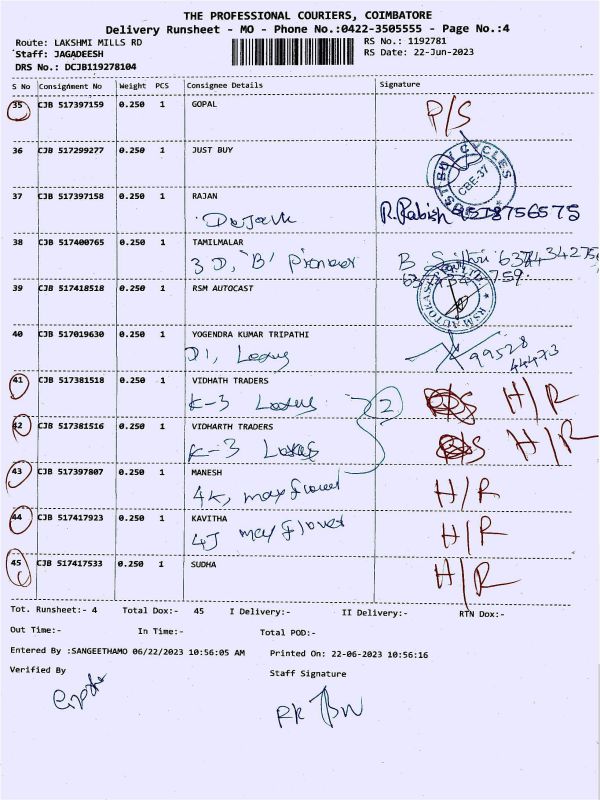 THE PROFESSIONAL COURIERS, COIMBATORE
Delivery Runsheet - MO - Phone No.:0422-3505555 - Page No.:4
Route: LAKSHMI MILLS RD
RS No.: 1192781
Staff: JAGADEESH
RS Date: 22-Jun-2023
DRS No.: DCJB119278104
S No Consignment No Weight PCS Consignee Details Signature
35 CJB 517397159 0.250 1 GOPAL P/S
36 CJB 517299277 0.250 1 JUST BUY
JUST BUY CYCLES CBE-37
37 CJB 517397158 0.250 1 RAJAN
38 CJB 517400765 0.250 1 TAMILMALAR
3 D, 'B' Pioneer
39 CJB 517418518 0.250 1 RSM AUTOCAST
40 CJB 517019630 0.250 1 YOGENDRA KUMAR TRIPATHI
D1, Lexus 99528
44473
41 CJB 517381518 0.250 1 VIDHATH TRADERS
K-3 Lexus 2 H/R
42 CJB 517381516 0.250 1 VIDHARTH TRADERS
K-3 Lexus H/R
43 CJB 517397807 0.250 1 MANESH
4K, mayflower H/R
44 CJB 517417923 0.250 1 KAVITHA
4J may flower H/R
45 CJB 517417533 0.250 1 SUDHA H/R
Tot. Runsheet:- 4 Total Dox:- 45 I Delivery:- II Delivery:- RTN Dox:-
Out Time:- In Time:- Total POD:-
Entered By :SANGEETHAMO 06/22/2023 10:56:05 AM Printed On: 22-06-2023 10:56:16
Verified By Staff Signature